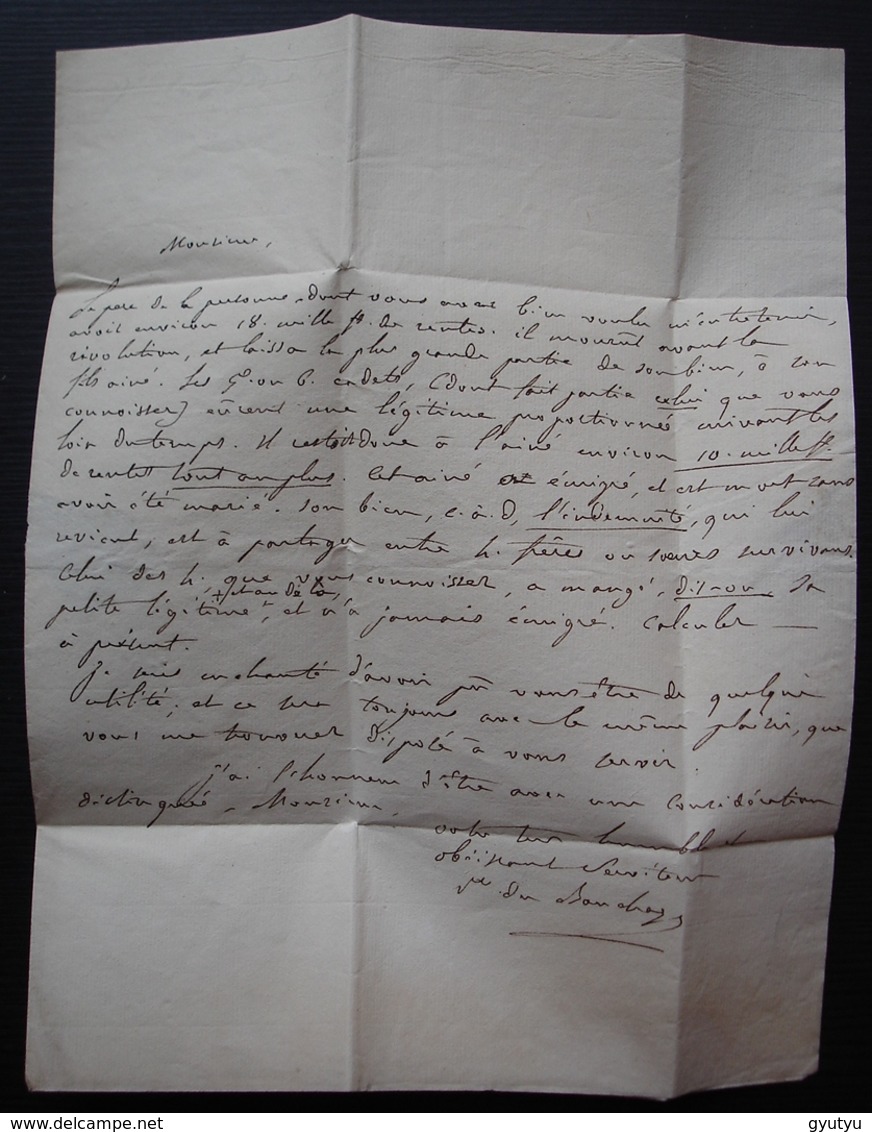 Monsieur,
Le père de la personne, dont vous avez bien voulu m'entretenir,
avoit environ 18. mille ff. de rentes. il mourut avant la
révolution, et laissa la plus grande partie de son bien, à son
fils ainé. Les 5. ou 6. cadets, (dont fait partie celui que vous
connoissez) eûrent une légitime proportionnée suivant les
loix du temps. Il restoit donc à l'ainé environ 10. mille ff.
de rentes tout au plus. Cet ainé est émigré, et est mort sans
avoir été marié. son bien, c. à. d. l'indemnité, qui lui
revient, est à partager entre 4. frères ou soeurs survivans.
Celui des 4. que vous connoissez, a mangé, dit-on, sa
petite légitime + et au de là, et n'a jamais émigré. Calculez —
à présent.
Je suis enchanté d'avoir pû vous être de quelque
utilité, et ce sera toujours avec le même plaisir, que
vous me trouverez disposé à vous servir.
J'ai l'honneur d'être avec une considération
distinguée, Monsieur
votre très humble et
obéissant Serviteur
du Bouchage
gyutyu